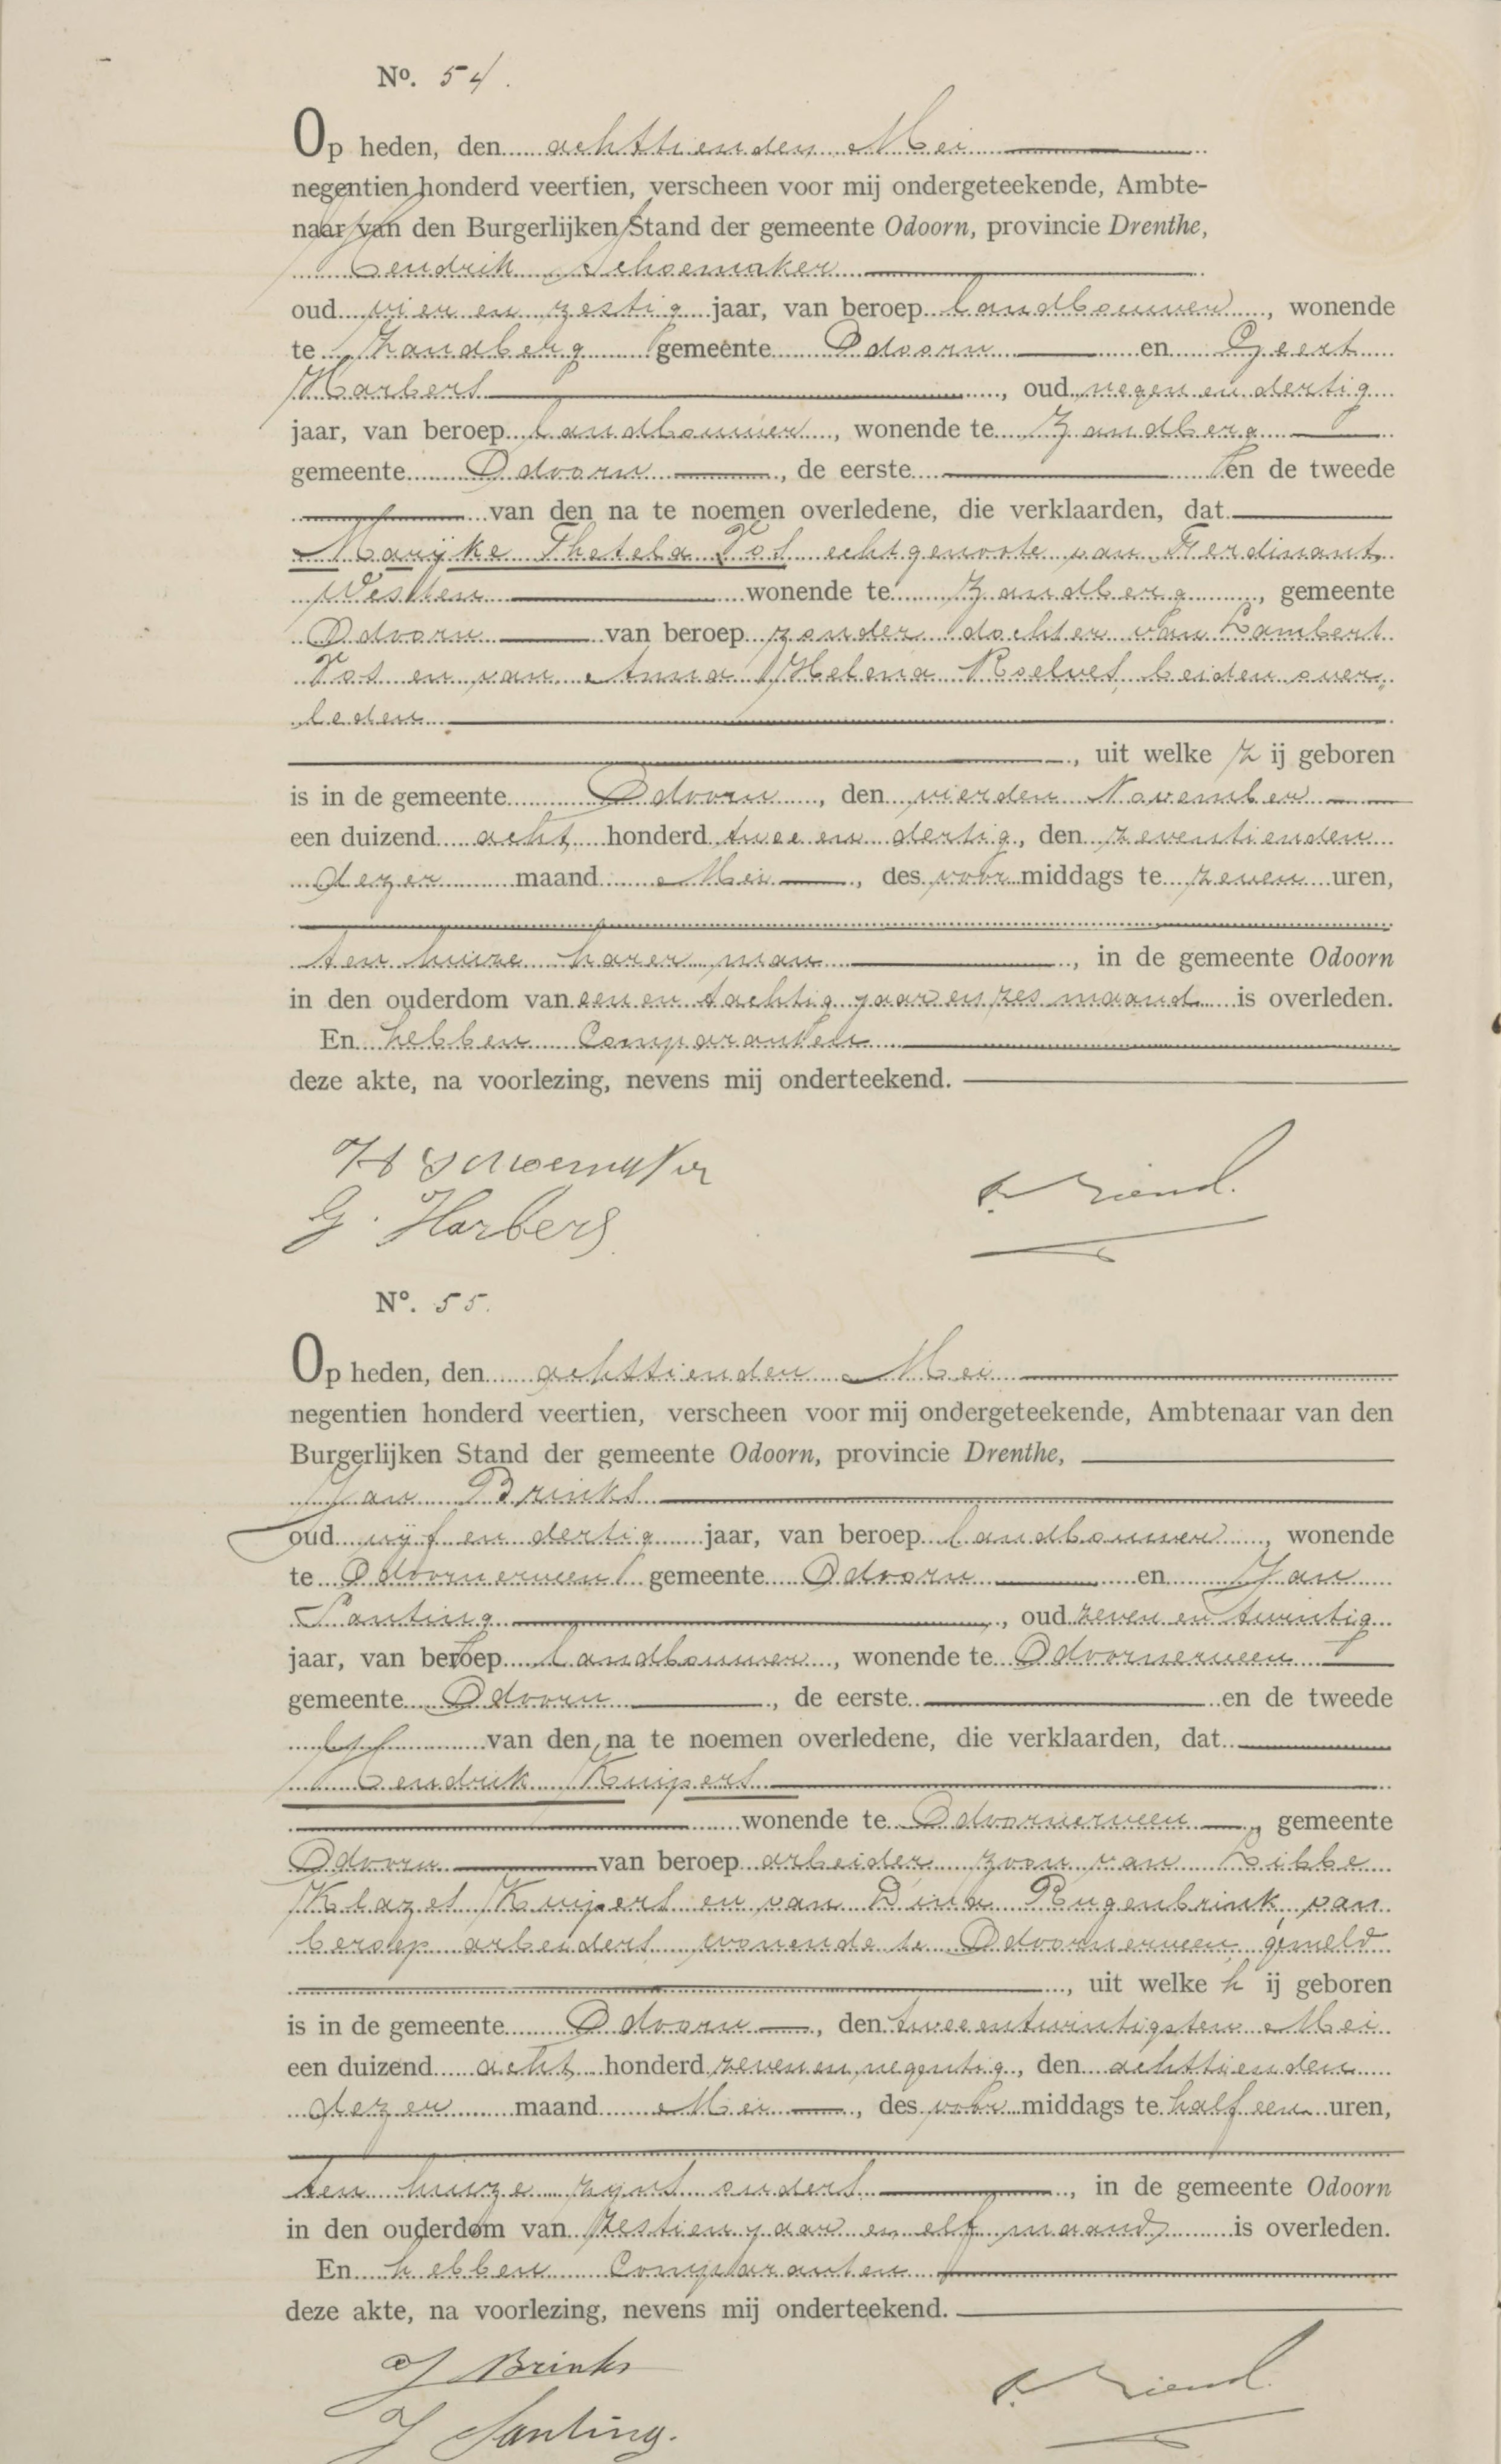 No. 54.
Op heden, den achttienden Mei
negentien honderd veertien, verscheen voor mij ondergeteekende, Ambte-
naar van den Burgerlijken Stand der gemeente Odoorn, provincie Drenthe,
Hendrik Schoemaker
oud vier en zestig jaar, van beroep landbouwer, wonende
te Zandberg gemeente Odoorn en Geert
Harbers, oud negen en dertig
jaar, van beroep landbouwer, wonende te Zandberg
gemeente Odoorn, de eerste en de tweede
van den na te noemen overledene, die verklaarden, dat
Marijke Thetela Vos echtgenoote van Ferdinant
Westen wonende te Zandberg, gemeente
Odoorn van beroep zonder dochter van Lambert
Vos en van Anna Helena Roelves, beiden over,
leden
, uit welke z ij geboren
is in de gemeente Odoorn, den vierden November
een duizend acht honderd twee en dertig, den zeventienden
dezer maand Mei, des voor middags te zeven uren,
ten huize harer man, in de gemeente Odoorn
in den ouderdom van een en tachtig jaar en zes maand is overleden.
En hebben Comparanten
deze akte, na voorlezing, nevens mij onderteekend.
H Schoemaker
G. Harbers
No. 55.
Op heden, den achttienden Mei
negentien honderd veertien, verscheen voor mij ondergeteekende, Ambtenaar van den
Burgerlijken Stand der gemeente Odoorn, provincie Drenthe,
Jan Brinks
oud vijf en dertig jaar, van beroep landbouwer, wonende
te Odoornerveen gemeente Odoorn en Jan
Santing, oud zeven en twintig
jaar, van beroep landbouwer, wonende te Odoornerveen
gemeente Odoorn, de eerste en de tweede
van den na te noemen overledene, die verklaarden, dat
Hendrik Kuipers
wonende te Odoornerveen, gemeente
Odoorn van beroep arbeider zoon van Sibbe
Klazes Kuipers en van Dina Rugenbrink, van
beroep arbeiders wonende te Odoornerveen gemeld
, uit welke h ij geboren
is in de gemeente Odoorn, den tweeentwintigsten Mei
een duizend acht honderd zeven en negentig, den achttienden
dezer maand Mei, des voor middags te half een uren,
ten huize zijns ouders, in de gemeente Odoorn
in den ouderdom van zestien jaar en elf maand is overleden.
En hebben Comparanten
deze akte, na voorlezing, nevens mij onderteekend.
J Brinks
J Santing.